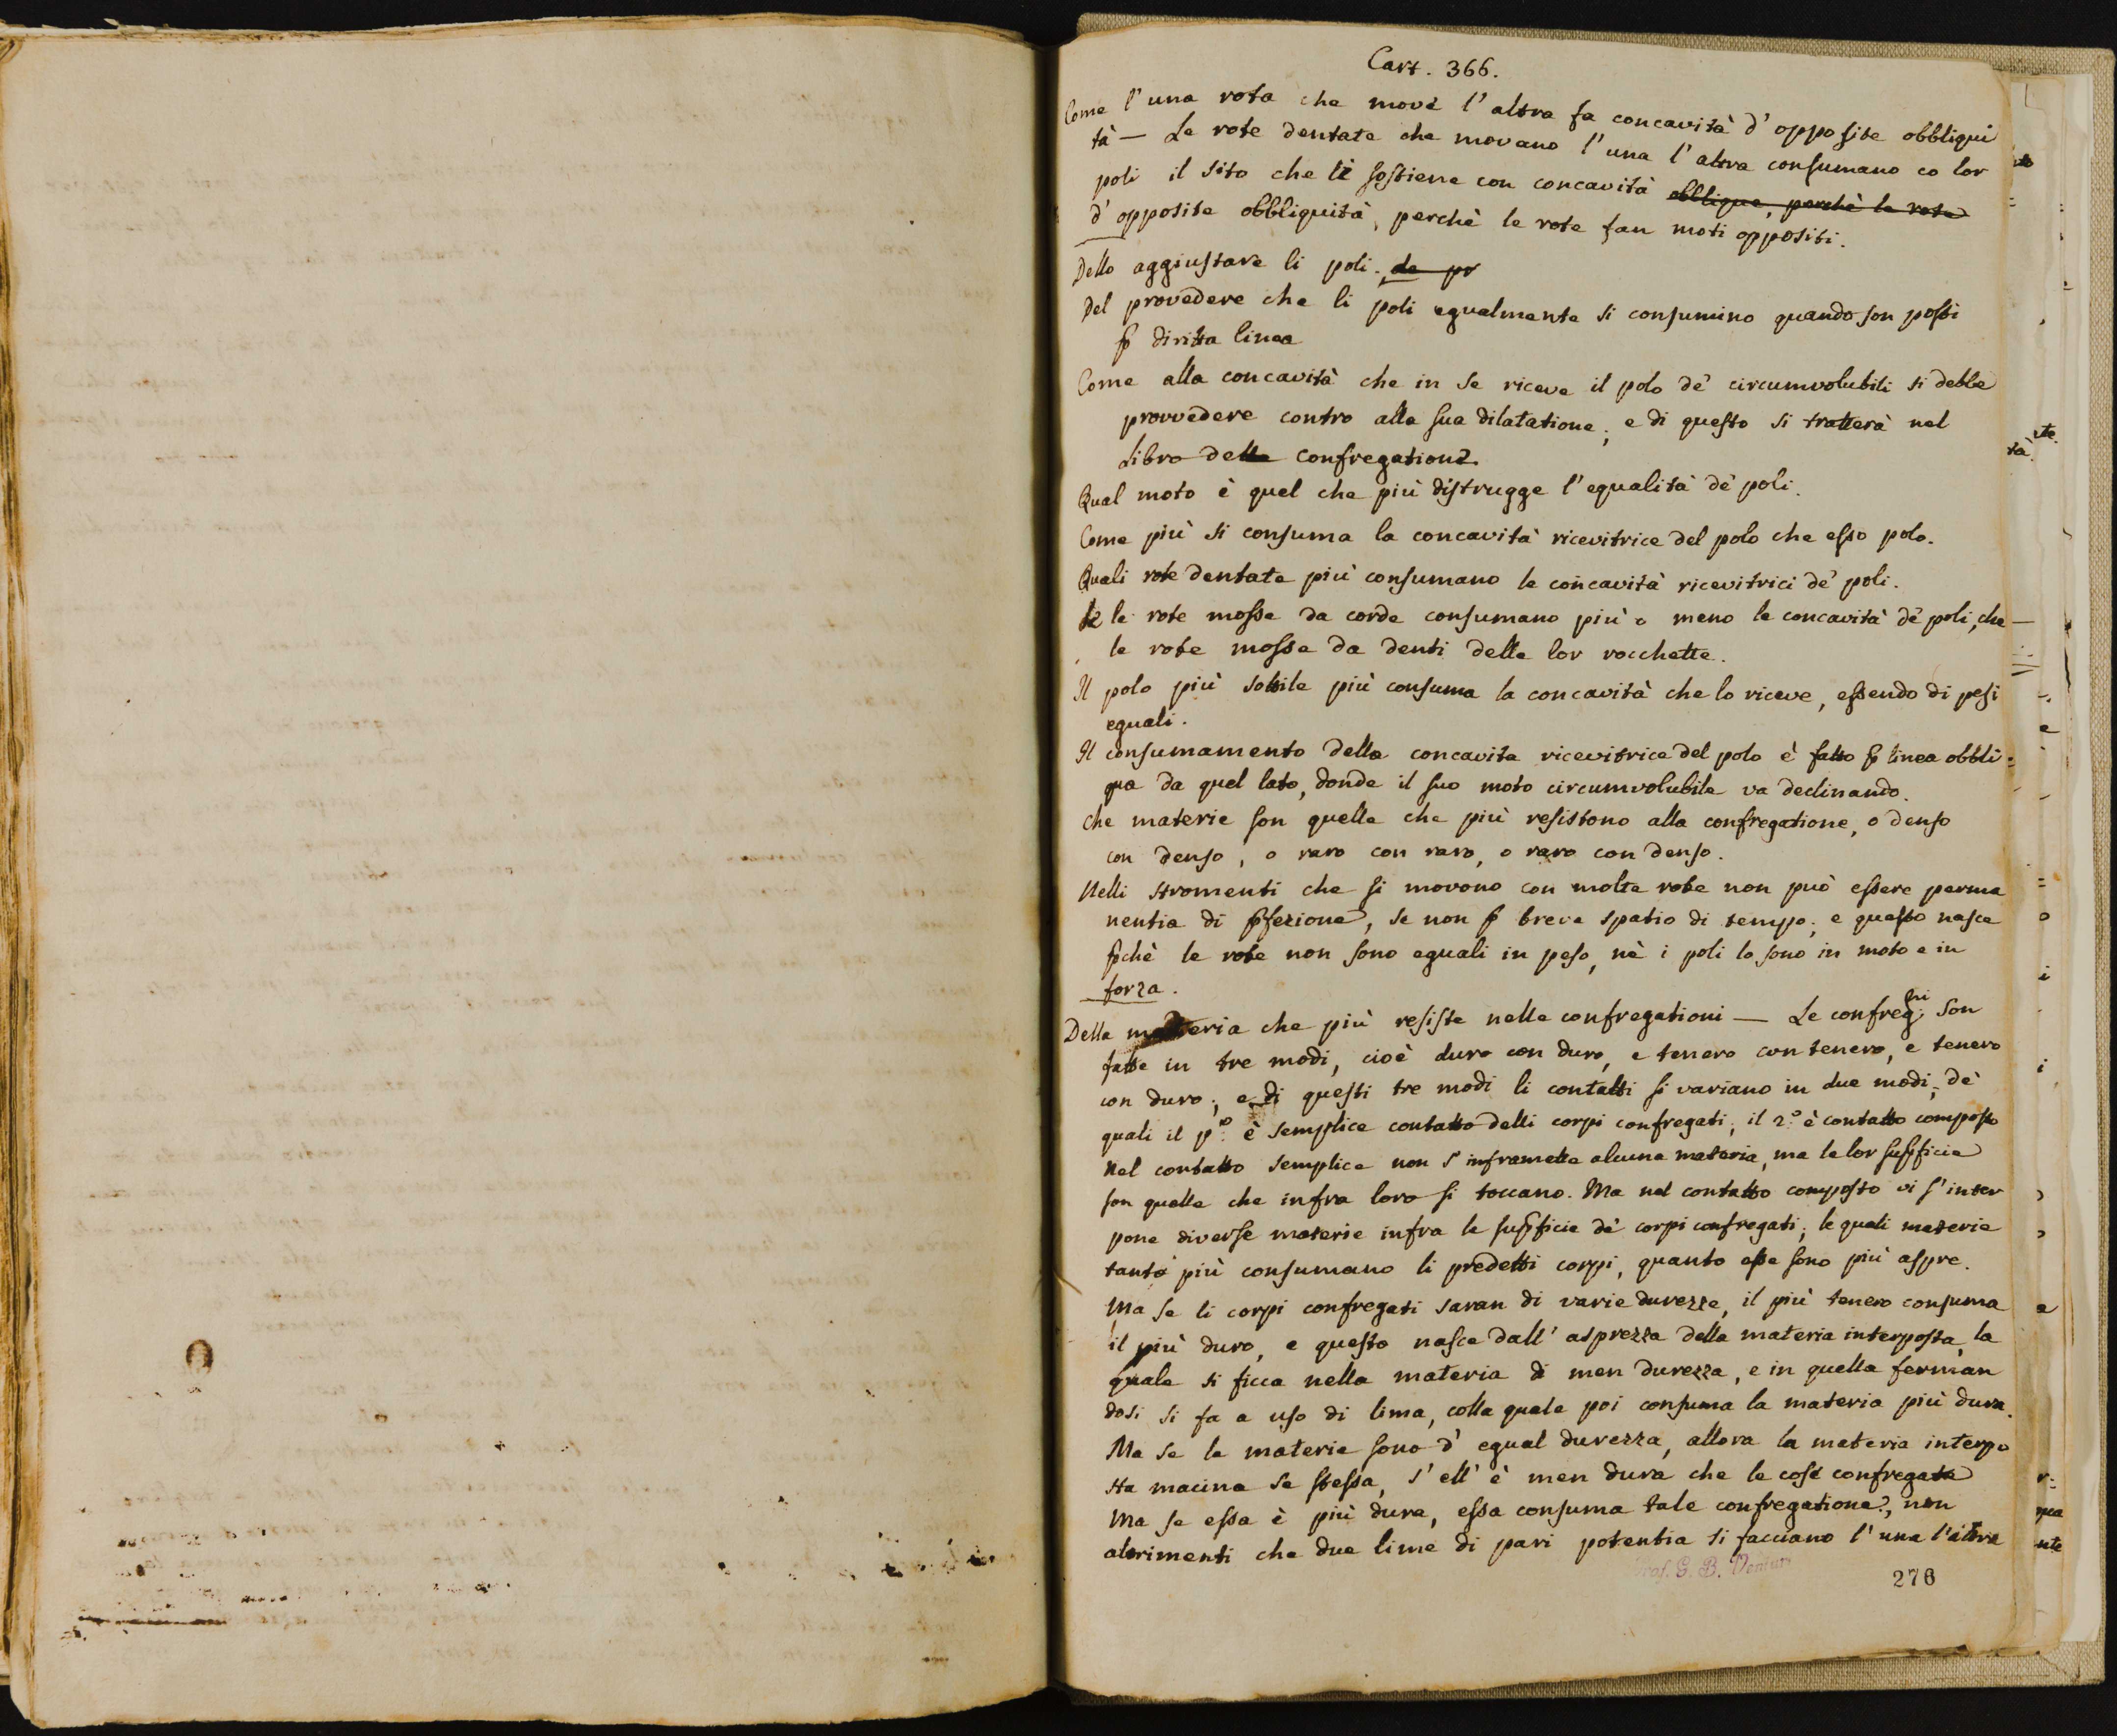 Cart. 366.
Come l'una rota che move l'altra fa concavità d'opposite obbliqui
tà — Le rote dentate che movano l'una l'altra consumano co lor
poli il sito che li sostiene con concavità obblique, perchè le rote
d'opposite obbliquità, perchè le rote fan moti oppositi.
Dello aggiustare li poli. de po
Del provedere che li poli egualmente si consumino quando son posti
ꝑ diritta linea
Come alla concavità che in se riceve il polo de' circumvolubili si debbe
provvedere contro alla sua dilatatione; e di questo si tratterà nel
Libro della Confregatione.
Qual moto è quel che più distrugge l'egualità de' poli.
Come più si consuma la concavità ricevitrice del polo che esso polo.
Quali rote dentate più consumano le concavità ricevitrici de' poli.
Se le rote mosse da corde consumano più o meno le concavità de' poli, che
le rote mosse da denti delle lor rocchette.
Il polo più sottile più consuma la concavità che lo riceve, essendo di pesi
eguali.
Il consumamento della concavita ricevitrice del polo è fatto ꝑ linea obbli=
qua da quel lato, donde il suo moto circumvolubile va declinando.
che materie son quelle che più resistono alla confregatione, o denso
con denso, o raro con raro, o raro con denso.
Nelli stromenti che si movono con molte rote non può essere perma
nentia di ꝑfezione, se non ꝑ breve spatio di tempo; e questo nasce
ꝑchè le rote non sono eguali in peso, nè i poli lo sono in moto e in
forza.
Della materia che più resiste nelle confregationi — Le confreg.ni son
fatte in tre modi, cioè duro con duro, e tenero con tenero, e tenero
con duro; e di questi tre modi li contatti si variano in due modi, de'
quali il p.º è semplice contatto delli corpi confregati; il 2.º è contatto composto
Nel contatto semplice non s'inframette alcuna materia, ma le lor suꝑficie
son quelle che infra loro si toccano. Ma nel contatto composto vi s'inter
pone diverse materie infra le suꝑficie de' corpi confregati; le quali materie
tanto più consumano li predetti corpi, quanto esse sono più aspre.
Ma se li corpi confregati saran di varie durezze, il più tenero consuma
il più duro, e questo nasce dall'asprezza della materia interposta, la
quale si ficca nella materia di men durezza, e in quella ferman
dosi si fa a uso di lima, colla quale poi consuma la materia più dura.
Ma se le materie sono d'egual durezza, allora la materia interpo
sta macina se stessa, s'ell'è men dura che le cose confregate
Ma se essa è più dura, essa consuma tale confregatione, non
altrimenti che due lime di pari potentia si facciano l'una l'altra
G. B. Venturi
276